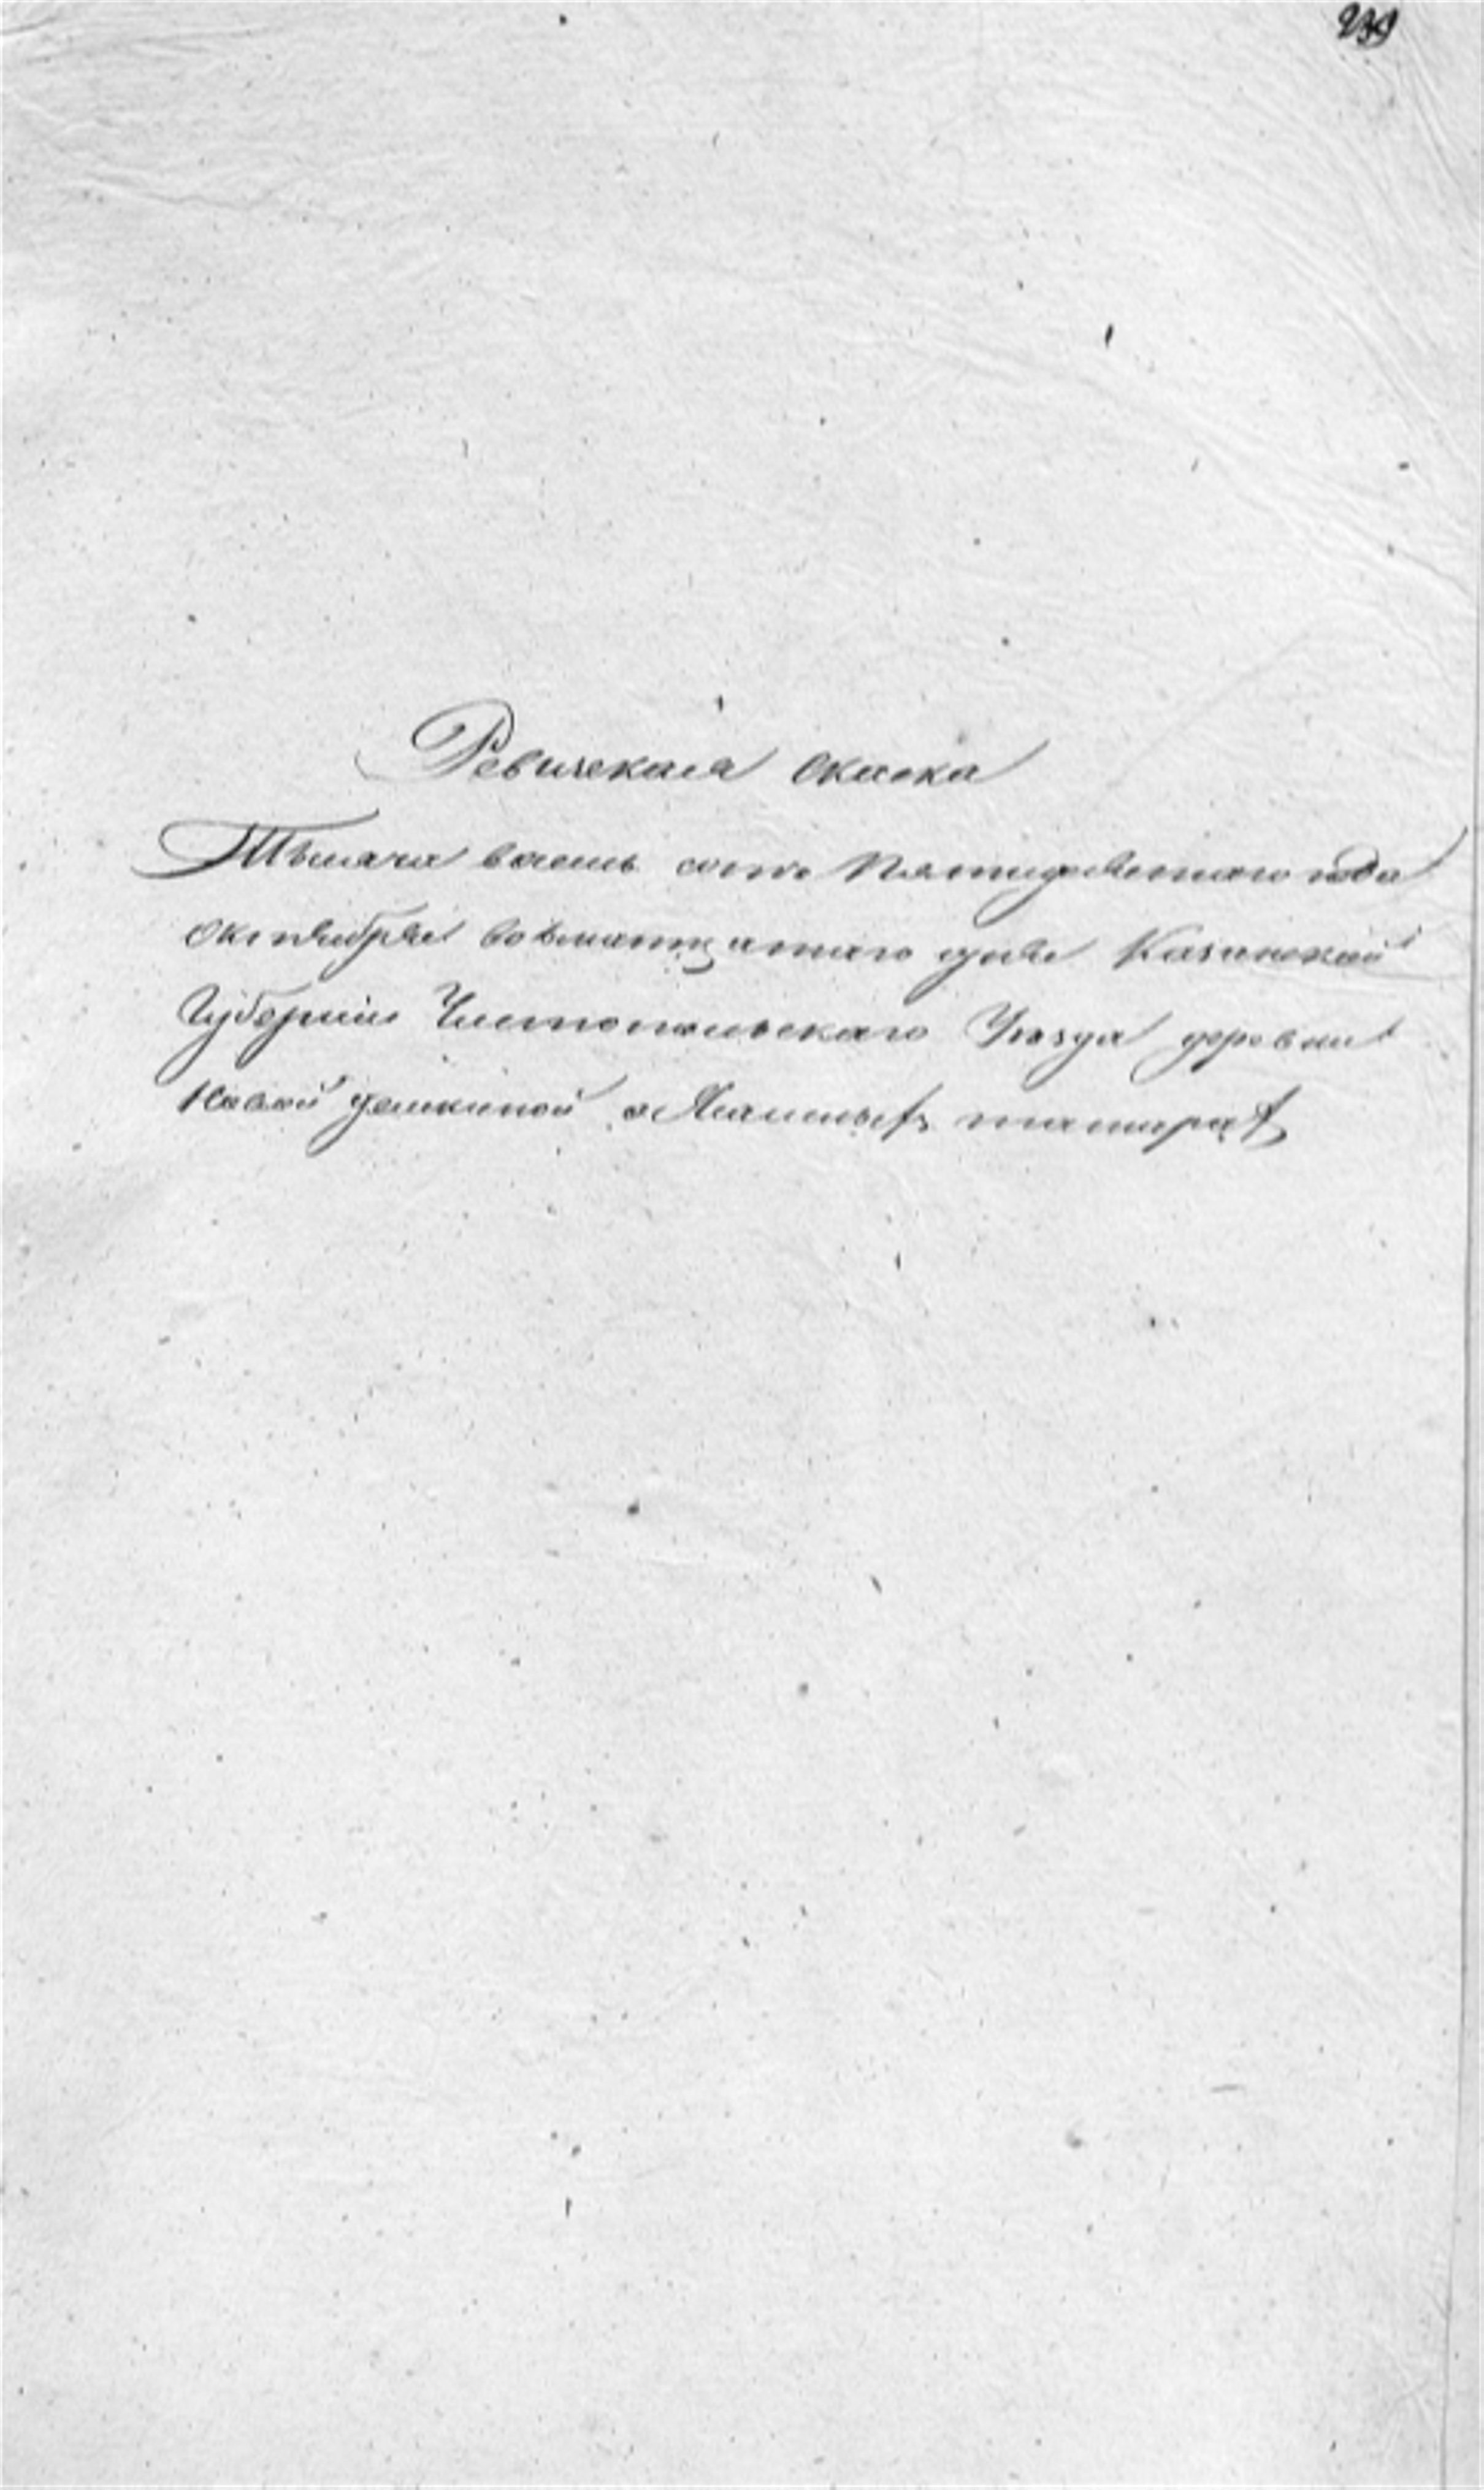 239
Ревиская скаска
Тысяча восемь сотъ пятидесятаго года
октября восемнатцатаго дня Казанской
Губернии Чистопольскаго Уезда деревни
Новой о ясашныхъ татарахъ